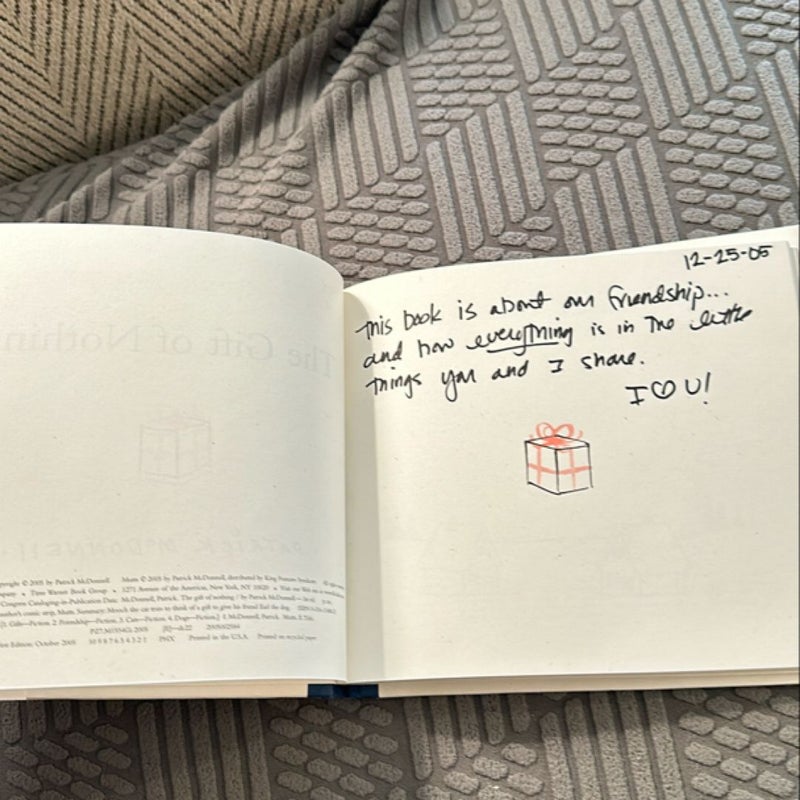 The Gift of Nothin
PATRICK McDONNELL
pyright © 2005 by Patrick McDonnell Mutts © 2005 by Patrick McDonnell, distributed by King Features Syndicate
mpany • Time Warner Book Group • 1271 Avenue of the Americas, New York, NY 10020 • Visit our Web site at
Congress Cataloging-in-Publication Data McDonnell, Patrick. The gift of nothing / by Patrick McDonnell.— 1st ed.
author's comic strip, Mutts. Summary: Mooch the cat tries to think of a gift to give his friend Earl the dog.
[1. Gifts—Fiction. 2. Friendship—Fiction. 3. Cats—Fiction. 4. Dogs—Fiction.] I. McDonnell, Patrick. Mutts. II. Title.
2005 [E]—dc22
First Edition: October 2005 10 9 8 7 6 5 4 3 2 1 PHX Printed in the U.S.A. Printed on recycled paper
12-25-05
This book is about our friendship...
and how everything is in the little
things you and I share.
I ♡ U!